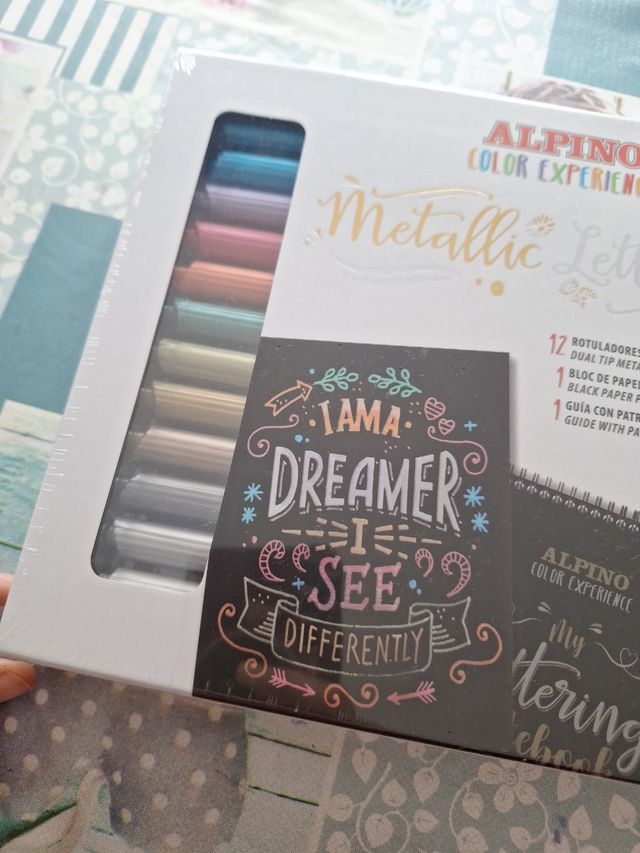 ALPINO
COLOR EXPERIENC
Metallic Lett
12 ROTULADORES
DUAL TIP META
1 BLOC DE PAPE
BLACK PAPER P
1 GUÍA CON PATR
GUIDE WITH PA
I AM A
DREAMER
I
SEE
DIFFERENTLY
ALPINO
COLOR EXPERIENCE
My
ttering
tebook